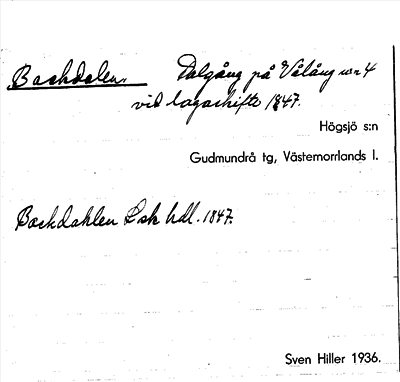 Backdalen. Dalgång på Vålång no 4
vid lagaskifte 1847.
Högsjö s:n
Gudmundrå tg, Västernorrlands l.
Backdahlen Lsk hdl. 1847.
Sven Hiller 1936.